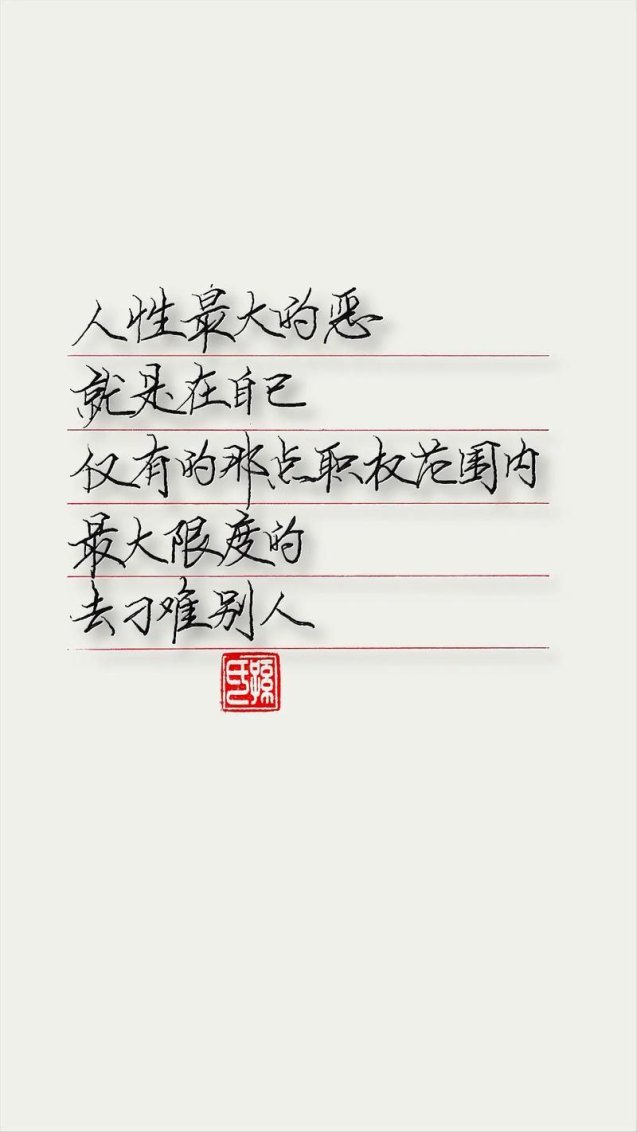 人性最大的恶
就是在自己
仅有的那点职权范围内
最大限度的
去刁难别人
孫氏